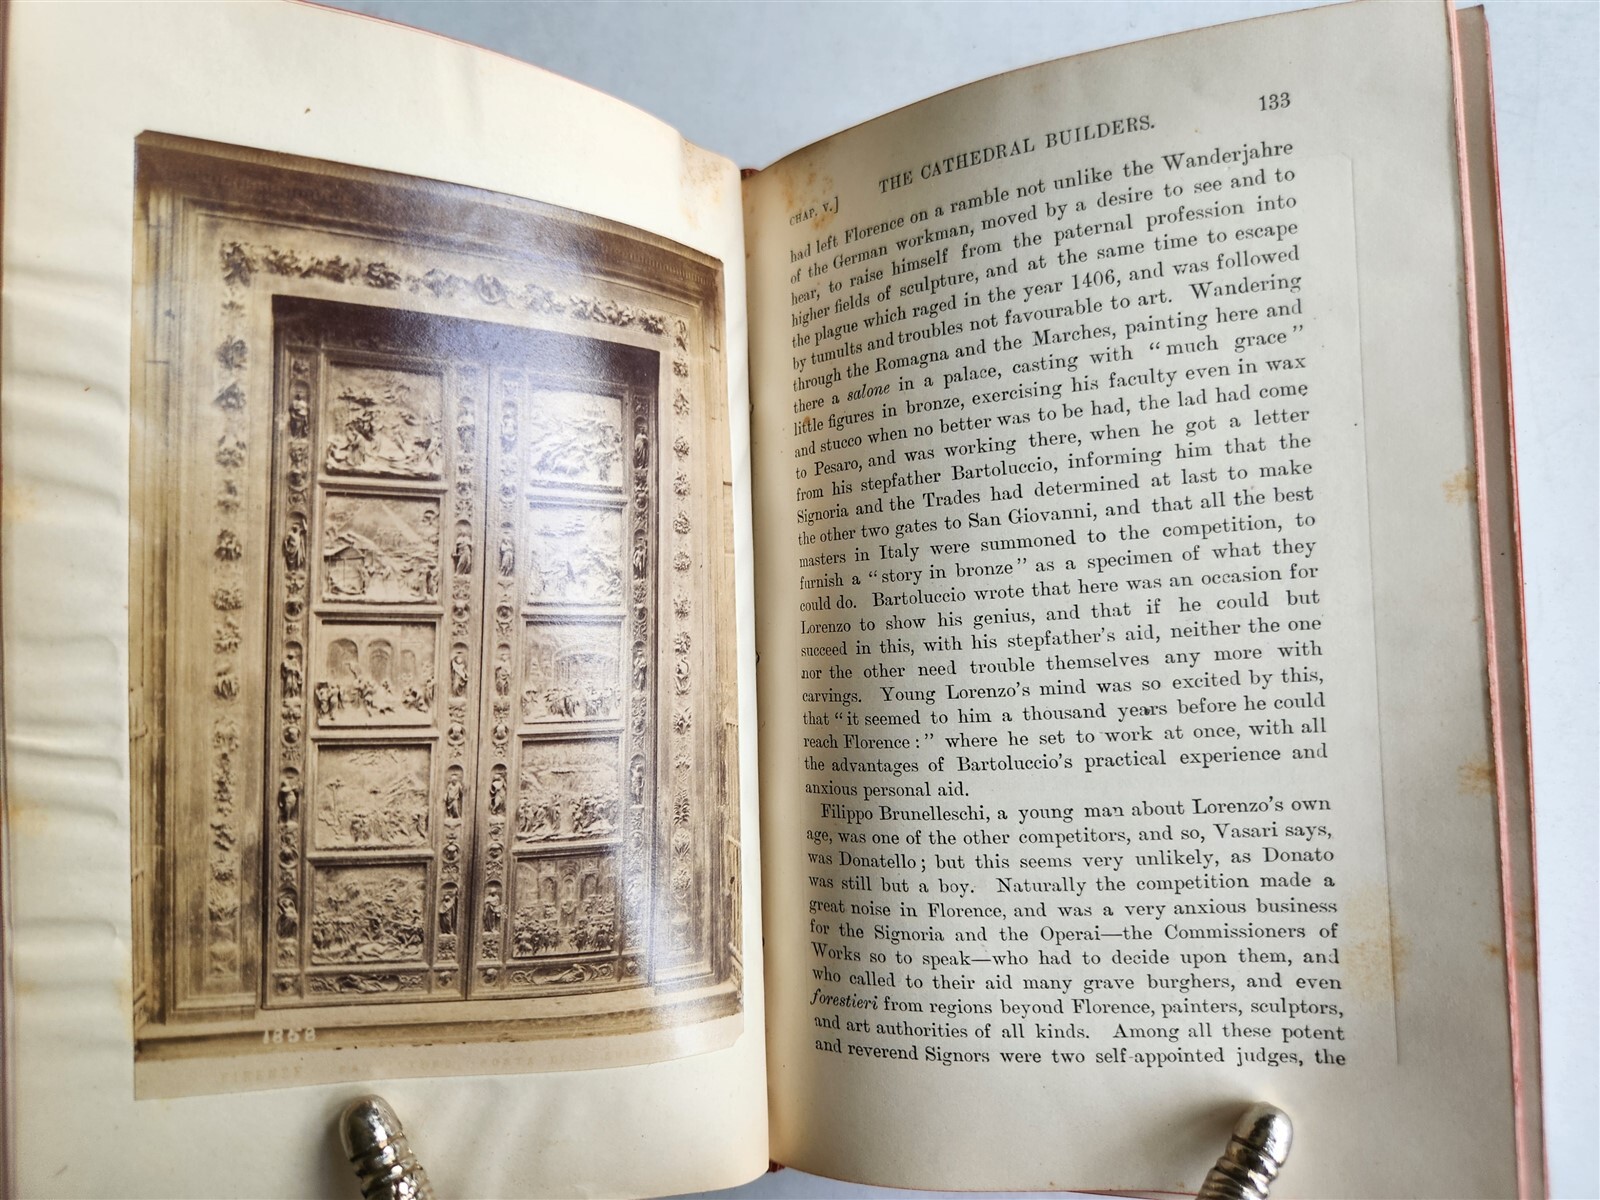 1868
FIRENZE
133
THE CATHEDRAL BUILDERS.
CHAP. V.]
had left Florence on a ramble not unlike the Wanderjahre
of the German workman, moved by a desire to see and to
hear, to raise himself from the paternal profession into
higher fields of sculpture, and at the same time to escape
the plague which raged in the year 1406, and was followed
by tumults and troubles not favourable to art. Wandering
through the Romagna and the Marches, painting here and
there a salone in a palace, casting with “much grace”
little figures in bronze, exercising his faculty even in wax
and stucco when no better was to be had, the lad had come
to Pesaro, and was working there, when he got a letter
from his stepfather Bartoluccio, informing him that the
Signoria and the Trades had determined at last to make
the other two gates to San Giovanni, and that all the best
masters in Italy were summoned to the competition, to
furnish a “story in bronze” as a specimen of what they
could do. Bartoluccio wrote that here was an occasion for
Lorenzo to show his genius, and that if he could but
succeed in this, with his stepfather’s aid, neither the one
nor the other need trouble themselves any more with
carvings. Young Lorenzo’s mind was so excited by this,
that “it seemed to him a thousand years before he could
reach Florence:” where he set to work at once, with all
the advantages of Bartoluccio’s practical experience and
anxious personal aid.
Filippo Brunelleschi, a young man about Lorenzo’s own
age, was one of the other competitors, and so, Vasari says,
was Donatello; but this seems very unlikely, as Donato
was still but a boy. Naturally the competition made a
great noise in Florence, and was a very anxious business
for the Signoria and the Operai—the Commissioners of
Works so to speak—who had to decide upon them, and
who called to their aid many grave burghers, and even
forestieri from regions beyond Florence, painters, sculptors,
and art authorities of all kinds. Among all these potent
and reverend Signors were two self-appointed judges, the